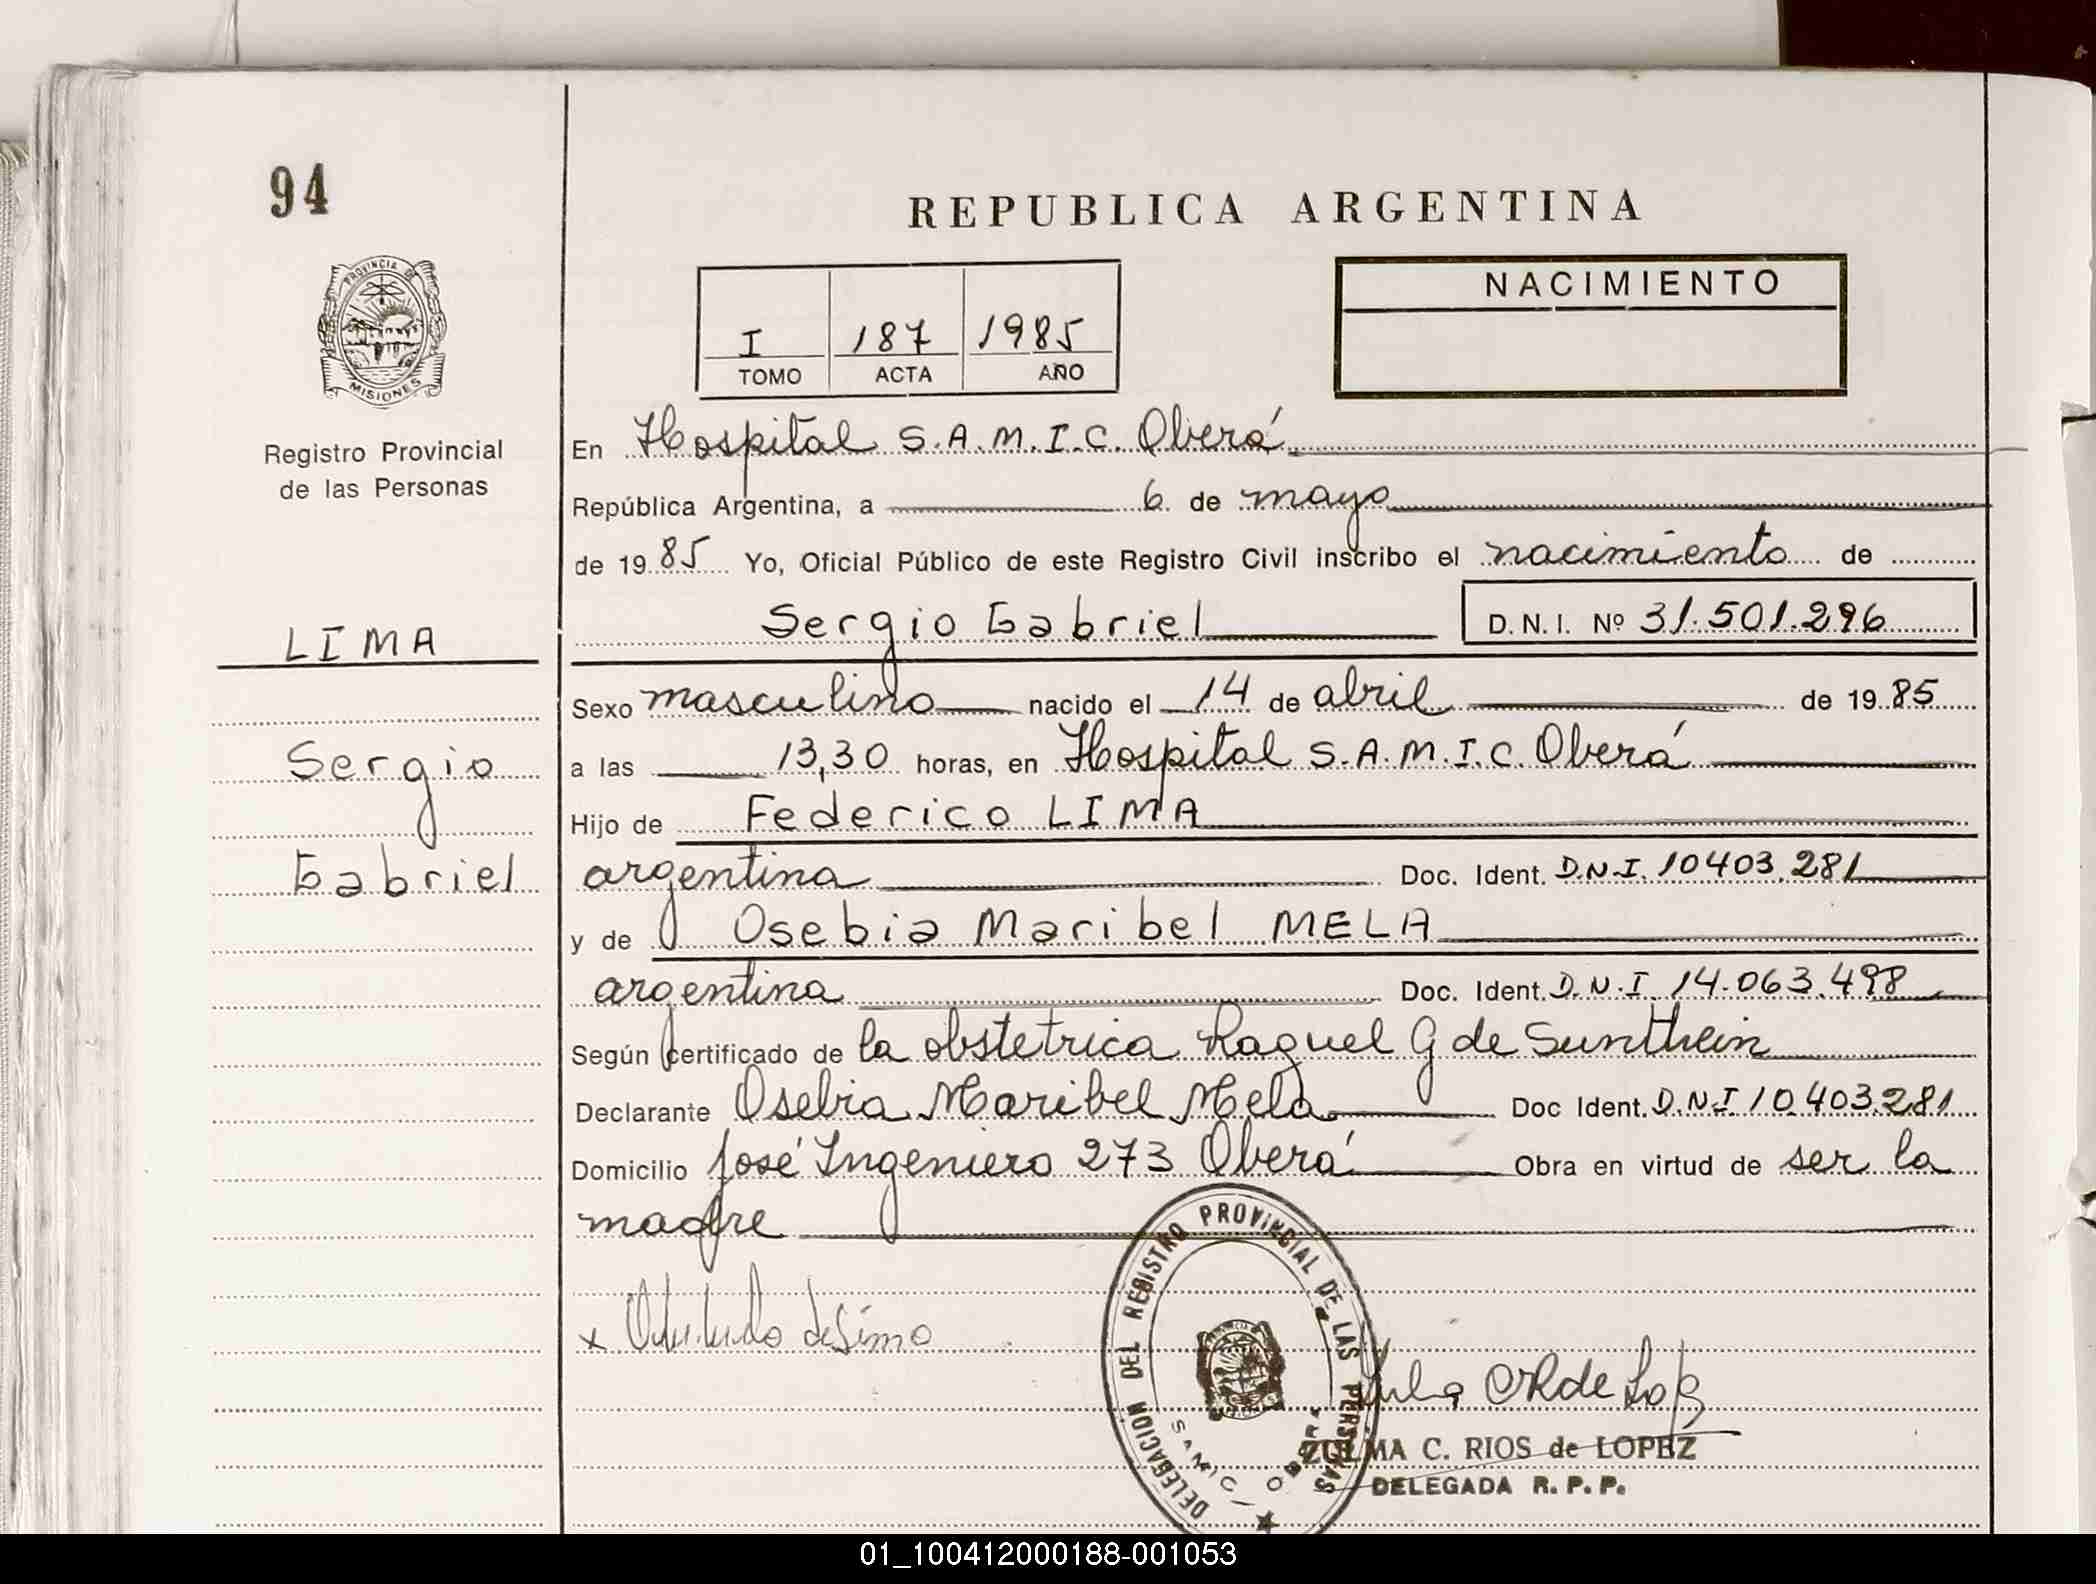 94
REPUBLICA ARGENTINA
PROVINCIA DE
MISIONES
NACIMIENTO
I 187 1985
TOMO ACTA AÑO
Registro Provincial
de las Personas
En Hospital S.A.M.I.C. Oberá
República Argentina, a 6 de mayo
de 1985 Yo, Oficial Público de este Registro Civil inscribo el nacimiento de
Sergio Gabriel D.N.I. Nº 31.501.296
LIMA
Sergio
Gabriel
Sexo masculino nacido el 14 de abril de 1985
a las 13,30 horas, en Hospital S.A.M.I.C. Oberá
Hijo de Federico LIMA
argentina Doc. Ident. D.N.I. 10403.281
y de Osebia Maribel MELA
argentina Doc. Ident. D.N.I 14.063.498
Según certificado de la obstetrica Raquel G de Sunthein
Declarante Osebia Maribel Mela Doc Ident. D.N.I 10.403.281
Domicilio José Ingeniero 273 Oberá Obra en virtud de ser la
madre
x
DELEGACION DEL REGISTRO PROVINCIAL DE LAS PERSONAS
SAMIC OBERA
ZULMA C. RIOS de LOPEZ
DELEGADA R. P. P.
01_100412000188-001053